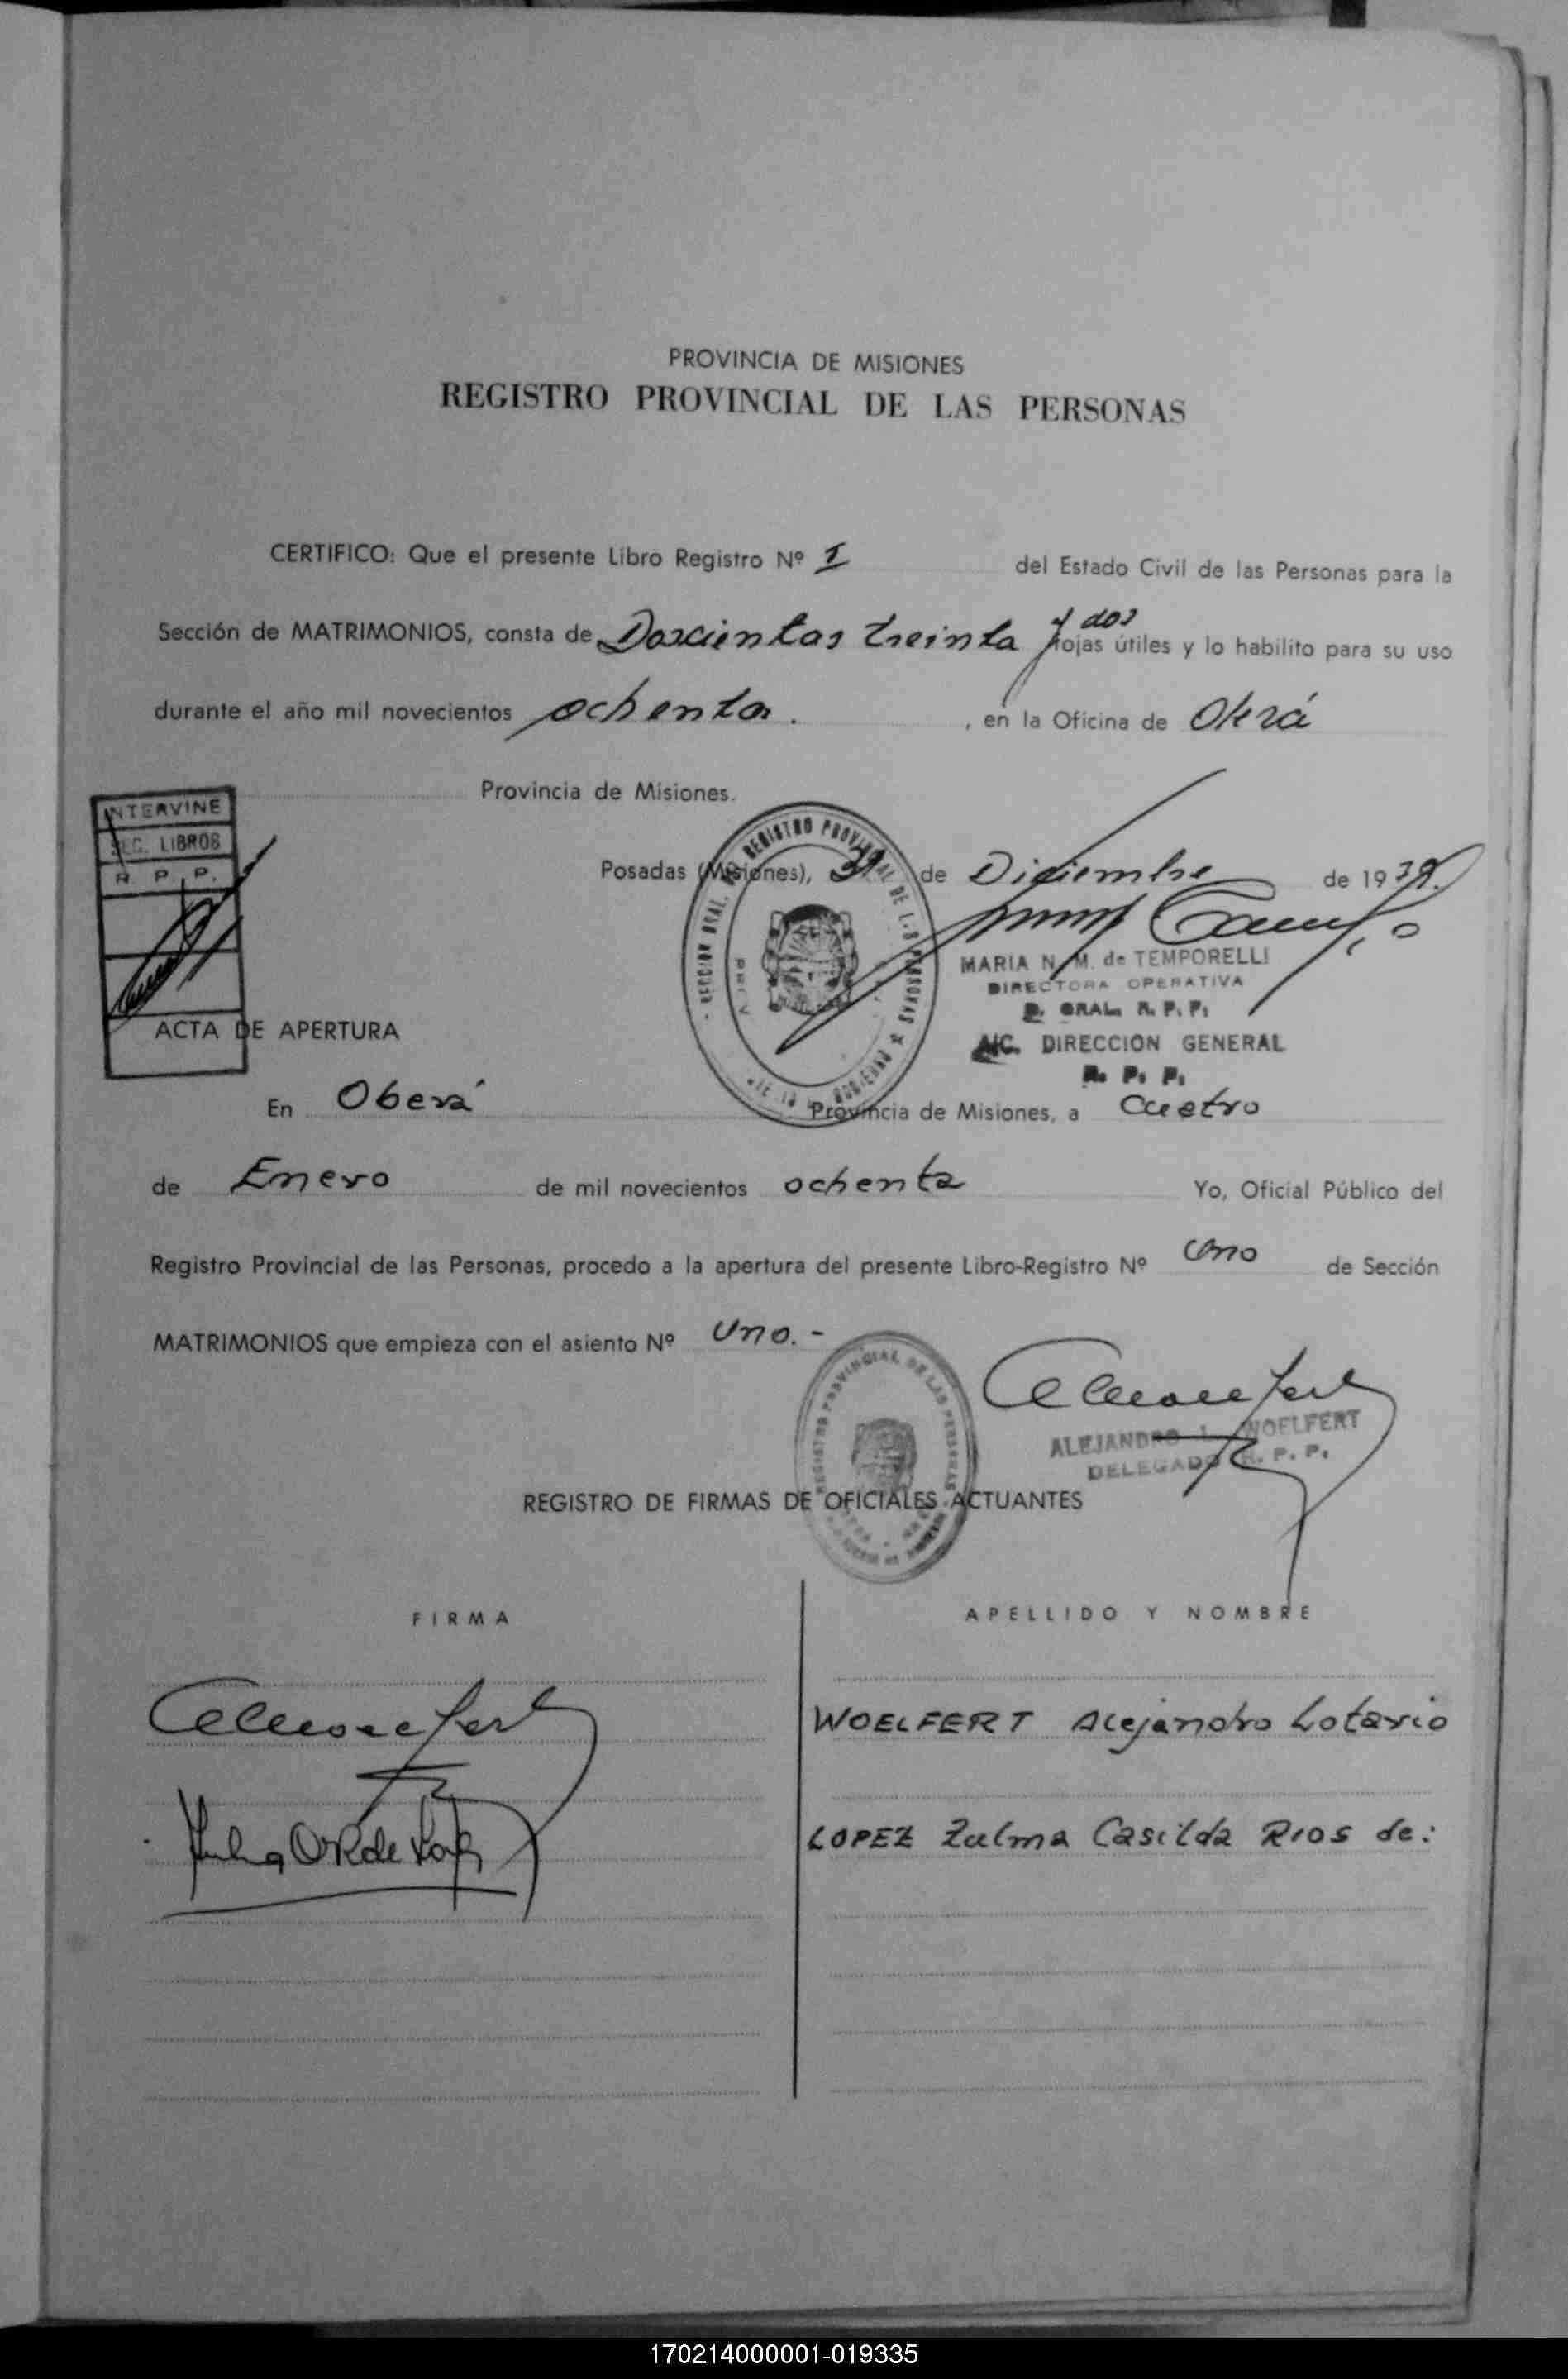 PROVINCIA DE MISIONES
REGISTRO PROVINCIAL DE LAS PERSONAS
CERTIFICO: Que el presente Libro Registro Nº I del Estado Civil de las Personas para la
Sección de MATRIMONIOS, consta de Doscientas treinta y dos fojas útiles y lo habilito para su uso
durante el año mil novecientos ochenta. , en la Oficina de Oberá
Provincia de Misiones.
INTERVINE
SEC. LIBROS
R. P. P.
Posadas (Misiones), de Diciembre de 1979.
MARIA N. M. de TEMPORELLI
DIRECTORA OPERATIVA
D. GRAL. R. P. P.
A/C. DIRECCION GENERAL
R. P. P.
ACTA DE APERTURA
En Oberá Provincia de Misiones, a Cuatro
de Enero de mil novecientos ochenta Yo, Oficial Público del
Registro Provincial de las Personas, procedo a la apertura del presente Libro-Registro Nº Uno de Sección
MATRIMONIOS que empieza con el asiento Nº Uno.-
REGISTRO PROVINCIAL DE LAS PERSONAS
ALEJANDRO L. WOELFERT
DELEGADO R. P. P.
REGISTRO DE FIRMAS DE OFICIALES ACTUANTES
FIRMA APELLIDO Y NOMBRE
WOELFERT Alejandro Lotario
LOPEZ Zulma Casilda RIOS de:
170214000001-019335